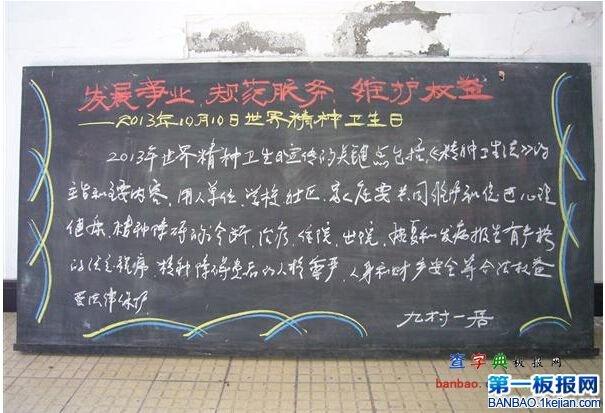 发展事业 规范服务 维护权益
——2013年10月10日世界精神卫生日
2013年世界精神卫生日宣传的关键点包括《精神卫生法》的
主旨和主要内容，用人单位、学校、社区、家庭要共同维护和促进心理
健康，精神障碍的诊断、治疗、住院、出院、康复和发病报告有严格
的法定程序，精神障碍患者的人格尊严、人身和财产安全等合法权益
受法律保护。
九村一居
查字典板报网
banbao.
第一板报网
BANBAO.1kejian.com